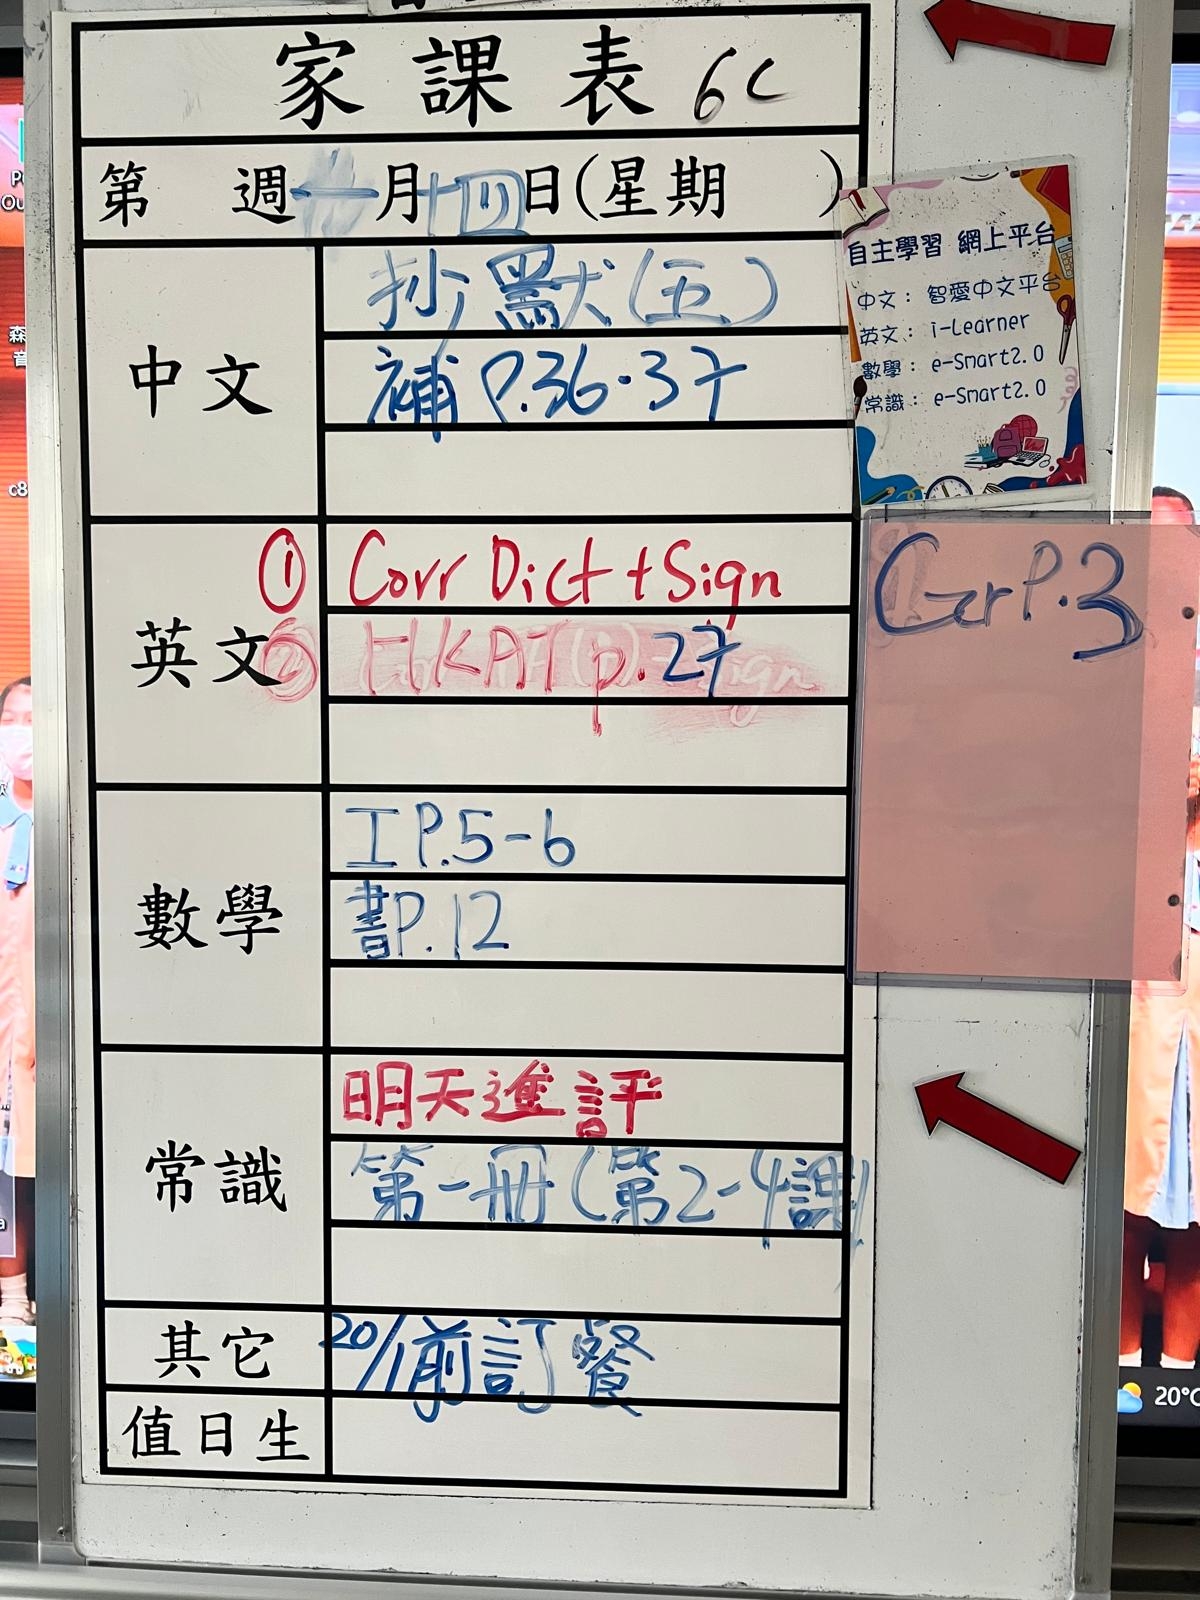 家課表 6C
第 週 一月十四日(星期 )
中文
抄默(五)
補 P.36-37
英文
① Corr Dict + Sign
② HKAT p.27
Ger P.3
數學
工 P.5-6
書 P.12
常識
明天進評
第一冊(第2-4課)
其它
20/1前訂餐
值日生
自主學習 網上平台
中文： 智愛中文平台
英文： i-Learner
數學： e-Smart2.0
常識： e-Smart2.0
20°C